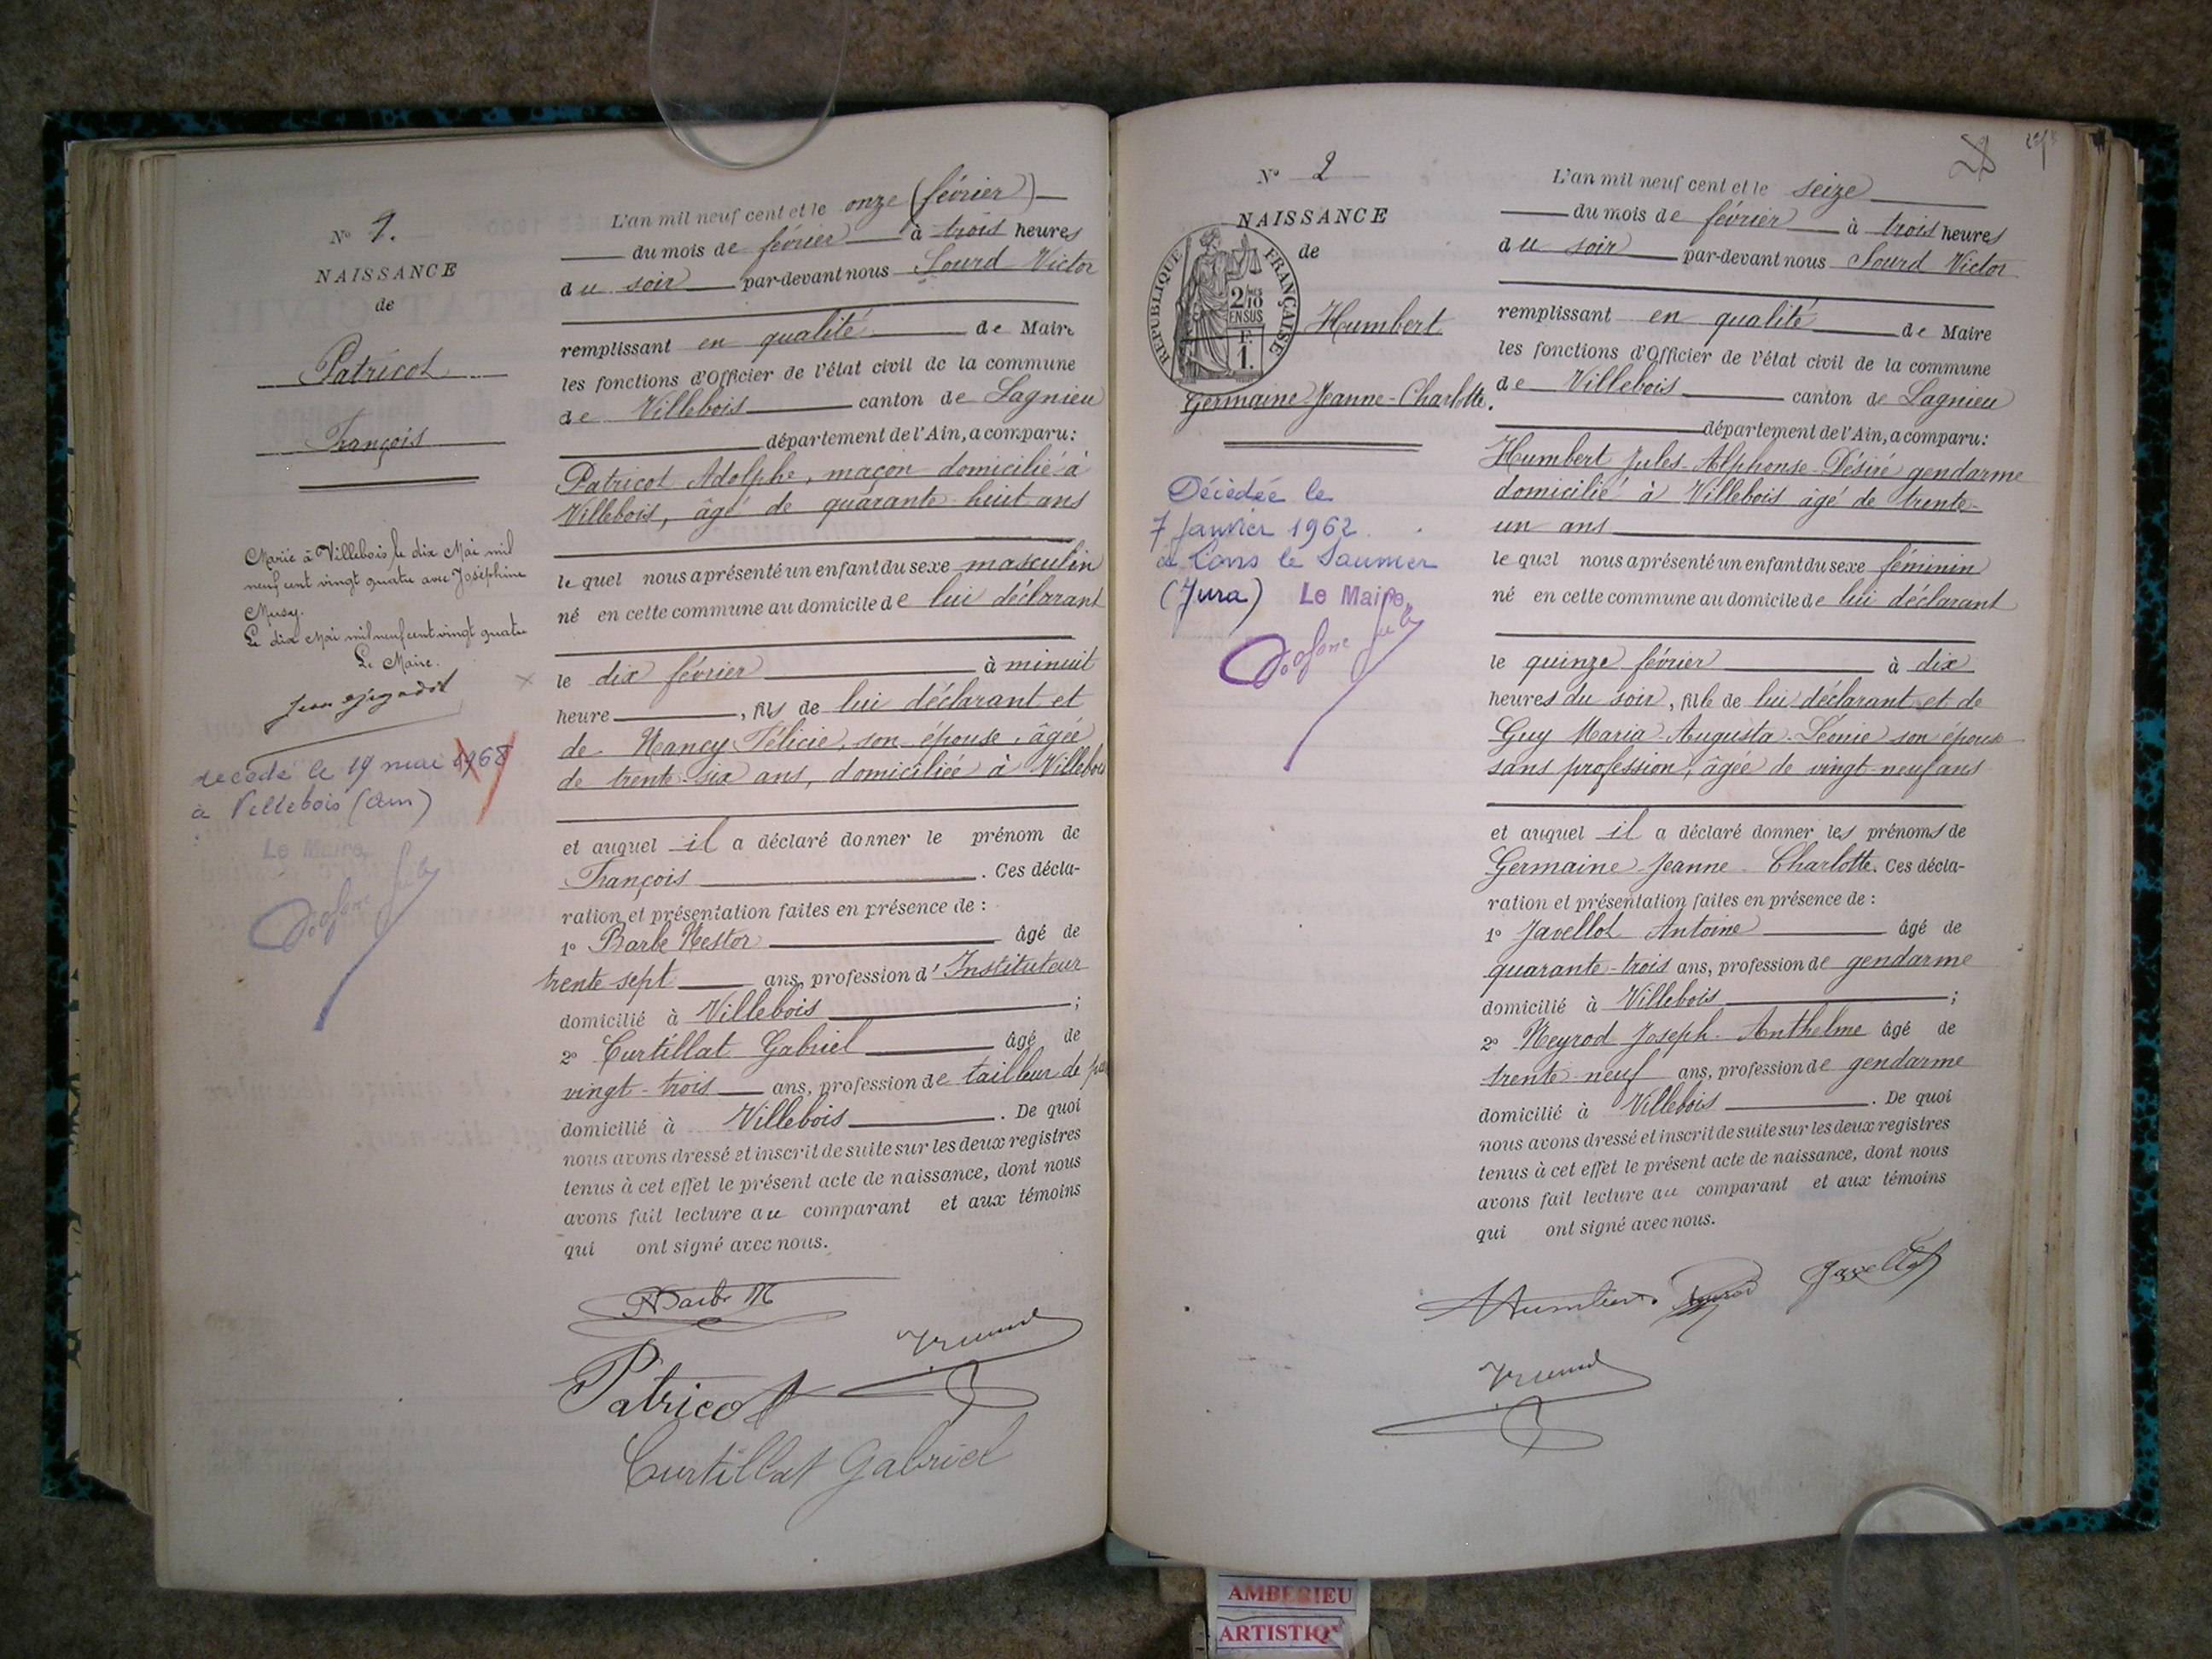 N° 1.
NAISSANCE
de
Patricot
François
Marié à Villebois le dix Mai mil
neuf cent vingt quatre avec Joséphine
Musy.
Le dix Mai mil neuf cent vingt quatre
Le Maire.
décédé le 19 mai 1968
à Villebois (Ain)
Le Maire,
L'an mil neuf cent et le onze (février)
du mois de février à trois heures
du soir par-devant nous Sourd Victor
remplissant en qualité de Maire
les fonctions d'Officier de l'état civil de la commune
de Villebois canton de Lagnieu
département de l'Ain, a comparu:
Patricot Adolphe, maçon domicilié à
Villebois, âgé de quarante huit ans
le quel nous a présenté un enfant du sexe masculin
né en cette commune au domicile de lui déclarant
le dix février à minuit
heure , fils de lui déclarant et
de Nancy Félicie, son épouse, âgée
de trente-six ans, domiciliée à Villebois
et auquel il a déclaré donner le prénom de
François . Ces décla-
ration et présentation faites en présence de :
1° Barbe Nestor âgé de
trente sept ans, profession d'Instituteur
domicilié à Villebois ;
2° Curtillat Gabriel âgé de
vingt-trois ans, profession de tailleur de
domicilié à Villebois . De quoi
nous avons dressé et inscrit de suite sur les deux registres
tenus à cet effet le présent acte de naissance, dont nous
avons fait lecture au comparant et aux témoins
qui ont signé avec nous.
Patricot
Curtillat Gabriel
N° 2
NAISSANCE
de
REPUBLIQUE FRANÇAISE
2/10
EN SUS
F.
1.
Humbert
Germaine-Jeanne-Charlotte.
Décédée le
7 Janvier 1962
à Lons le Saunier
(Jura) Le Maire,
L'an mil neuf cent et le seize
du mois de février à trois heures
du soir par-devant nous Sourd Victor
remplissant en qualité de Maire
les fonctions d'Officier de l'état civil de la commune
de Villebois canton de Lagnieu
département de l'Ain, a comparu:
Humbert Jules-Alphonse-Désiré gendarme
domicilié à Villebois âgé de trente-
un ans
le quel nous a présenté un enfant du sexe féminin
né en cette commune au domicile de lui déclarant
le quinze février à dix
heures du soir, fille de lui déclarant et de
Guy Maria-Augusta-Léonie son épouse
sans profession, âgée de vingt-neuf ans
et auquel il a déclaré donner les prénoms de
Germaine-Jeanne-Charlotte. Ces décla-
ration et présentation faites en présence de :
1° Javellot Antoine âgé de
quarante-trois ans, profession de gendarme
domicilié à Villebois ;
2° Neyrod Joseph-Anthelme âgé de
trente-neuf ans, profession de gendarme
domicilié à Villebois . De quoi
nous avons dressé et inscrit de suite sur les deux registres
tenus à cet effet le présent acte de naissance, dont nous
avons fait lecture au comparant et aux témoins
qui ont signé avec nous.
Humbert Neyrod Javellot
AMBERIEU
ARTISTIQ